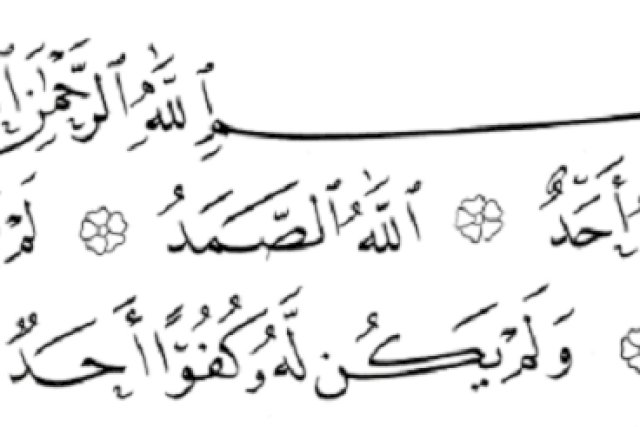 ـمِ ٱللَّهِ ٱلرَّحْمَٰنِ ٱ
أَحَدٌ ۝ ٱللَّهُ ٱلصَّمَدُ ۝ لَمْ
وَلَمْ يَكُن لَّهُۥ كُفُوًا أَحَدٌ